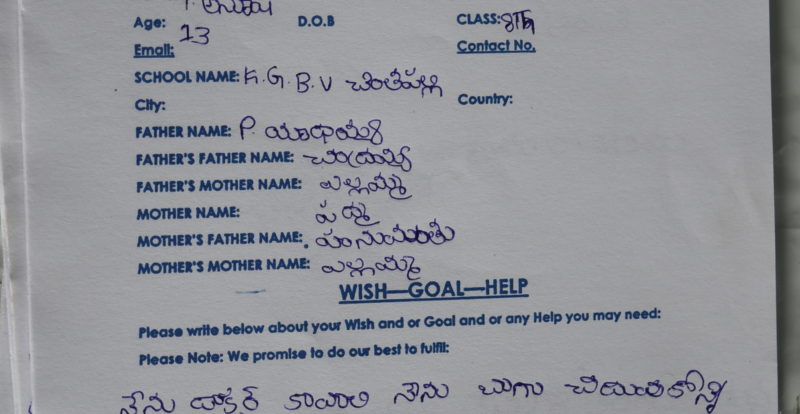 Age: 13 D.O.B CLASS: 8TH
Email: Contact No.
SCHOOL NAME: K.G.B.V చింతపల్లి
City: Country:
FATHER NAME: P. యాదయ్య
FATHER'S FATHER NAME: చంద్రయ్య
FATHER'S MOTHER NAME: ఎల్లమ్మ
MOTHER NAME: పద్మ
MOTHER'S FATHER NAME: హనుమంతు
MOTHER'S MOTHER NAME: ఎల్లమ్మ
WISH—GOAL—HELP
Please write below about your Wish and or Goal and or any Help you may need:
Please Note: We promise to do our best to fulfil:
నేను డాక్టర్ కావాలి నేను బాగా చదువుకోన్ని